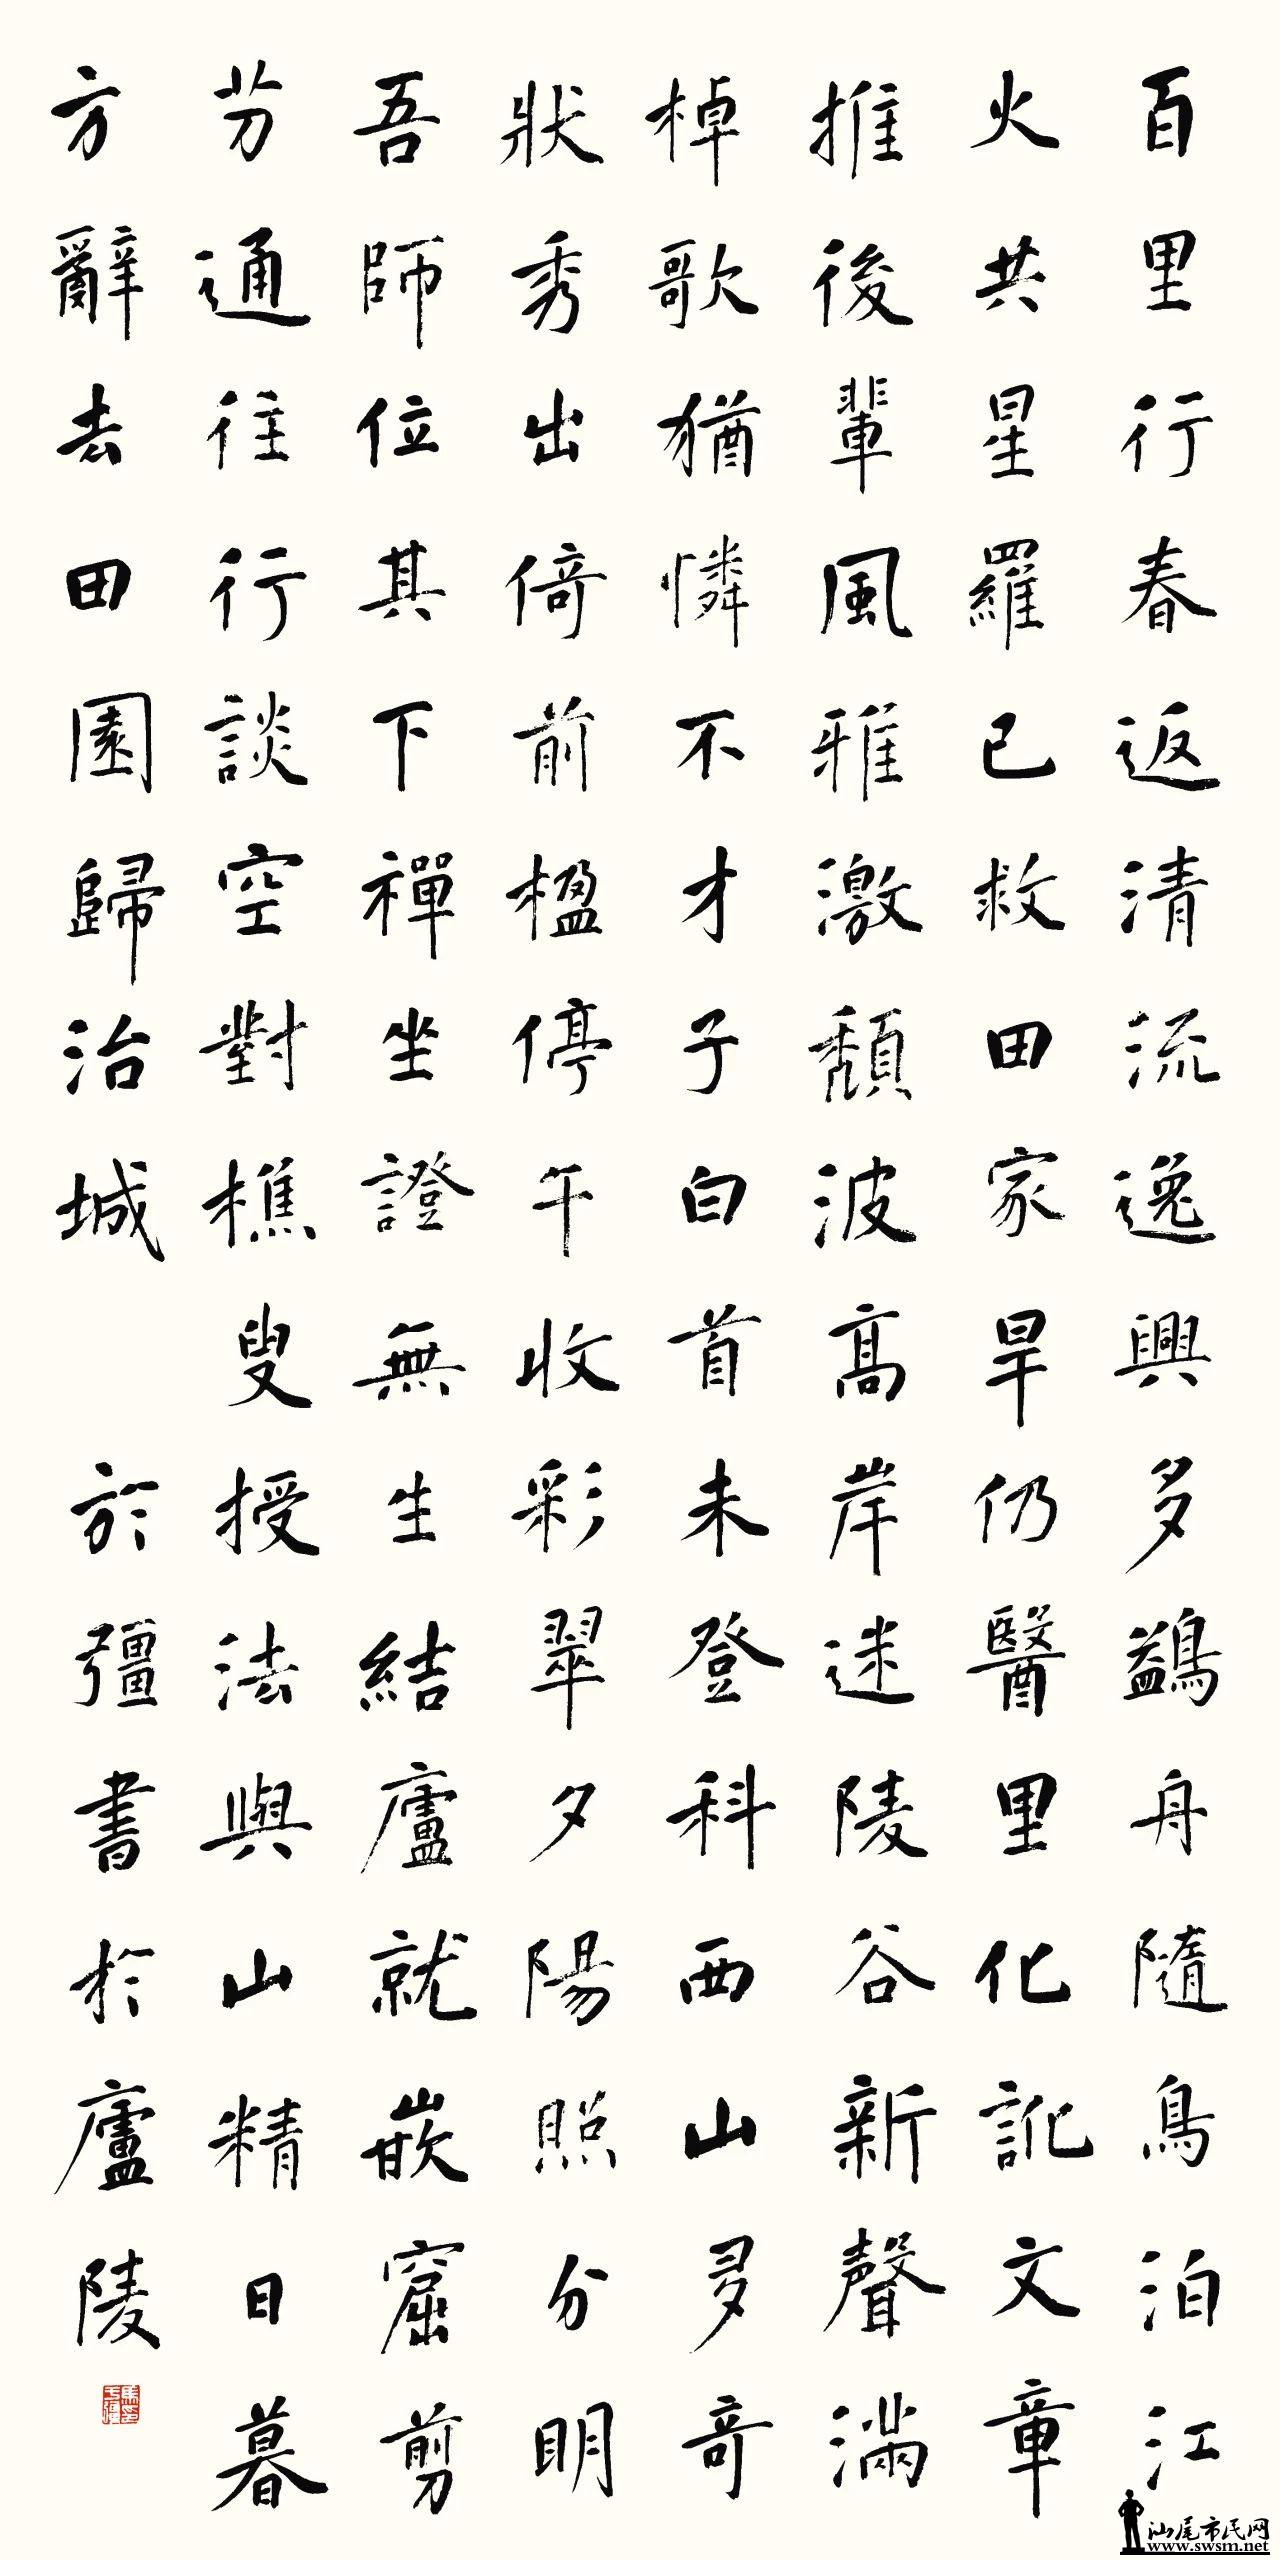 百里行春返清流逸興多鷁舟隨鳥泊江
火共星羅已救田家旱仍醫里化訛文章
推後輩風雅激頹波高岸迷陵谷新聲滿
棹歌猶憐不才子白首未登科西山多奇
狀秀出倚前楹停午收彩翠夕陽照分明
吾師位其下禪坐證無生結廬就嵌窟剪
芀通往行談空對樵叟授法與山精日暮
方辭去田園歸治城
於彊書於廬陵
汕尾市民网
www.swsm.net